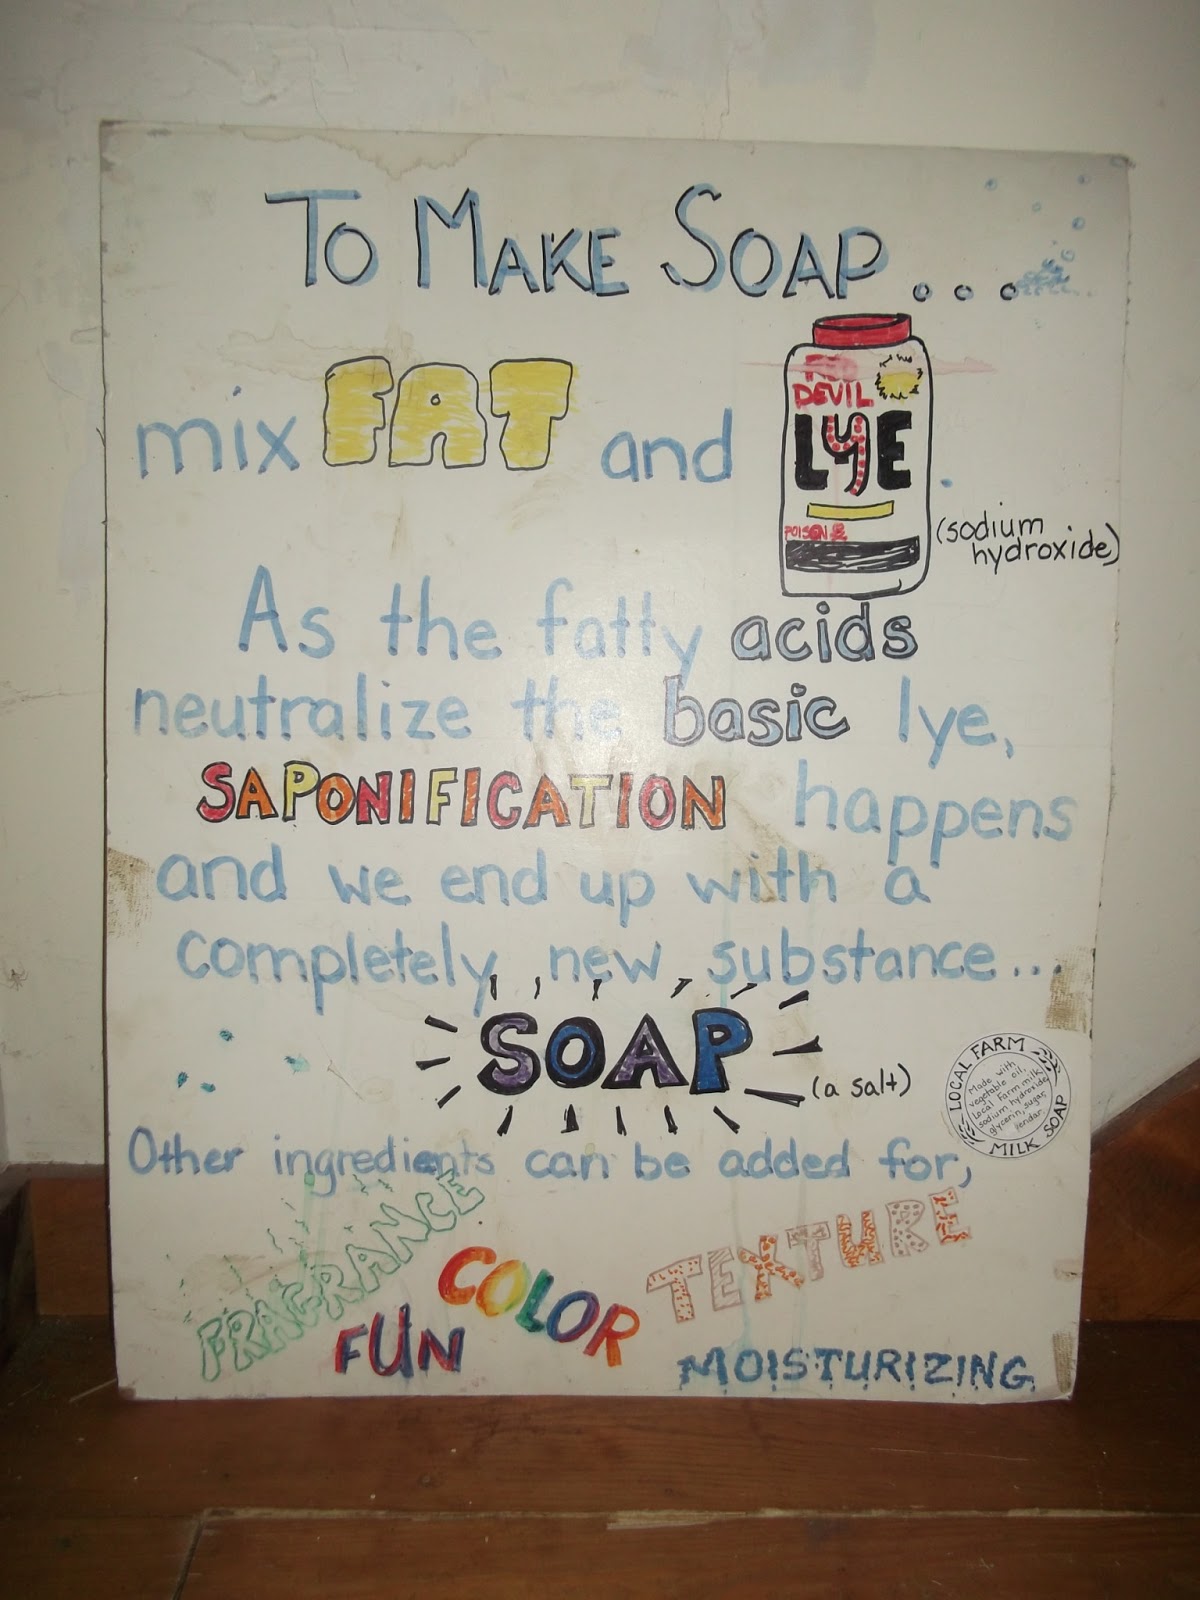 TO MAKE SOAP...
mix FAT and
RED
DEVIL
LYE
.
POISON
(sodium
hydroxide)
As the fatty acids
neutralize the basic lye,
SAPONIFICATION happens
and we end up with a
completely new substance...
SOAP
(a salt)
LOCAL FARM
Made with
vegetable oil,
Local Farm milk,
sodium hydroxide,
glycerin, sugar,
MILK SOAP
Other ingredients can be added for,
FRAGRANCE
FUN
COLOR
TEXTURE
MOISTURIZING